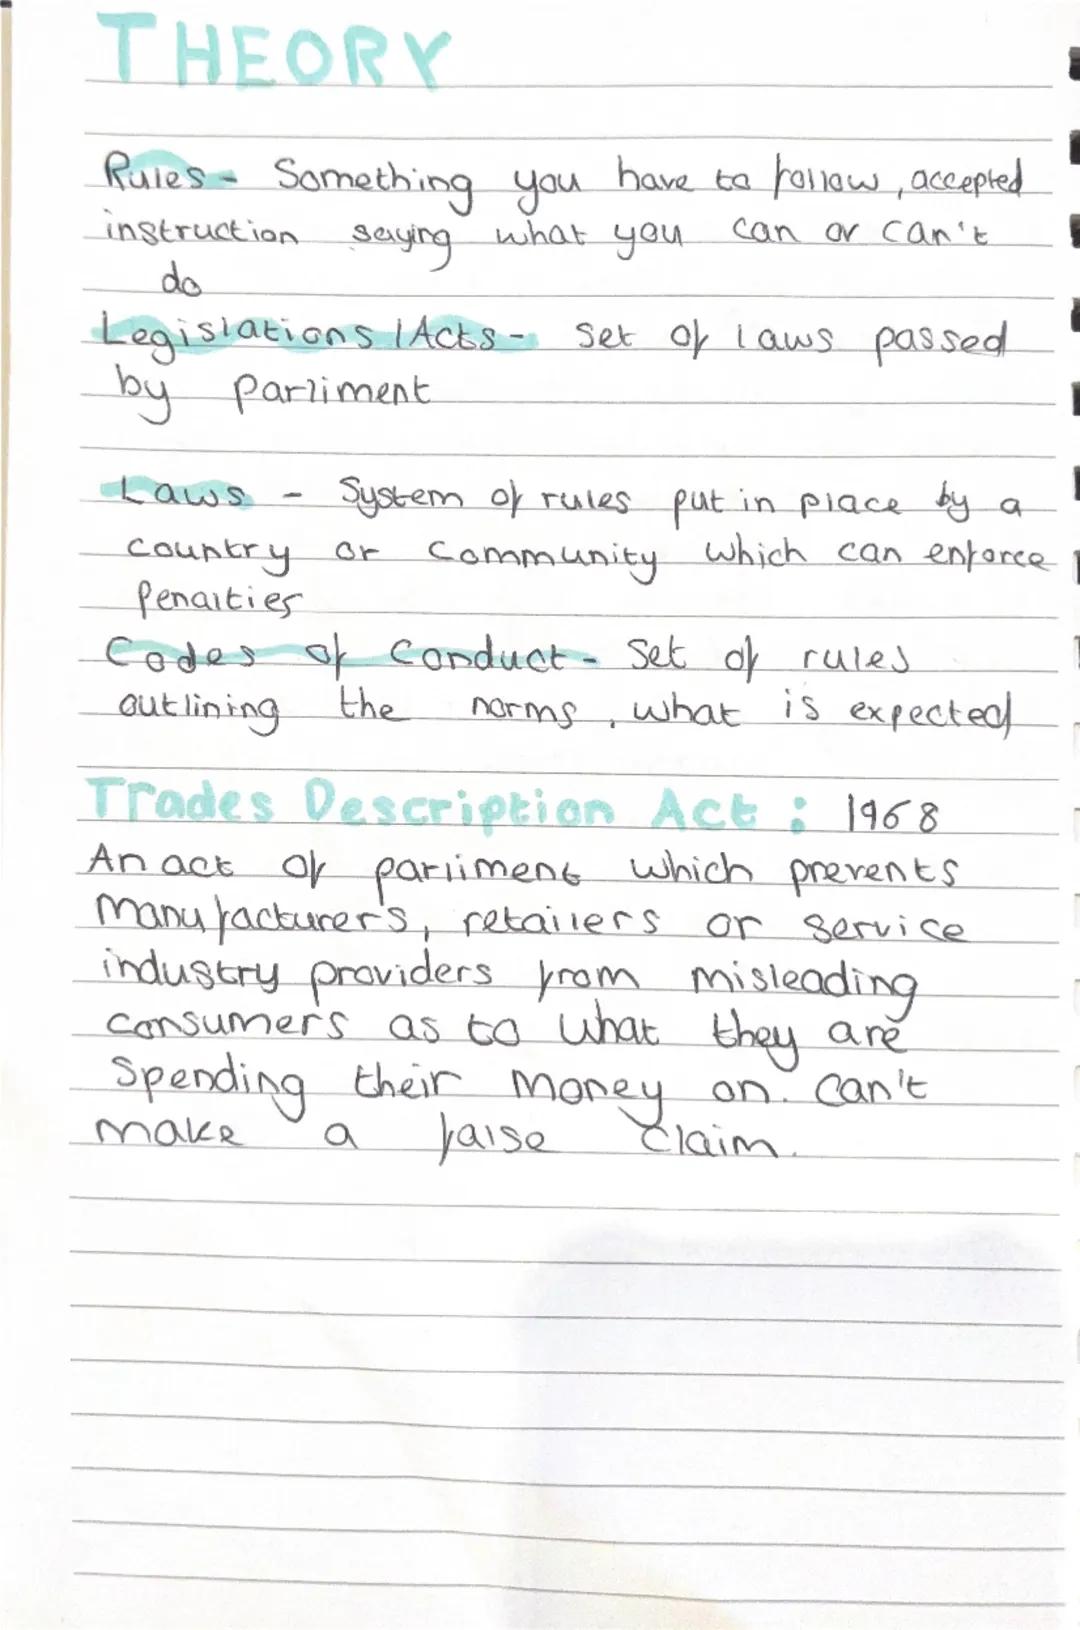 THEORY
Rules - Something you have to follow, accepted
instruction saying what you can or can't
do
Legislations / Acts - Set of laws passed
by parliment
Laws - System of rules put in place by a
country or community which can enforce
penalties
Codes of Conduct - Set of rules
outlining the norms, what is expected
Trades Description Act : 1968
An act of parliment which prevents
manufacturers, retailers or service
industry providers from misleading
consumers as to what they are
spending their money on. Can't
make a false claim.